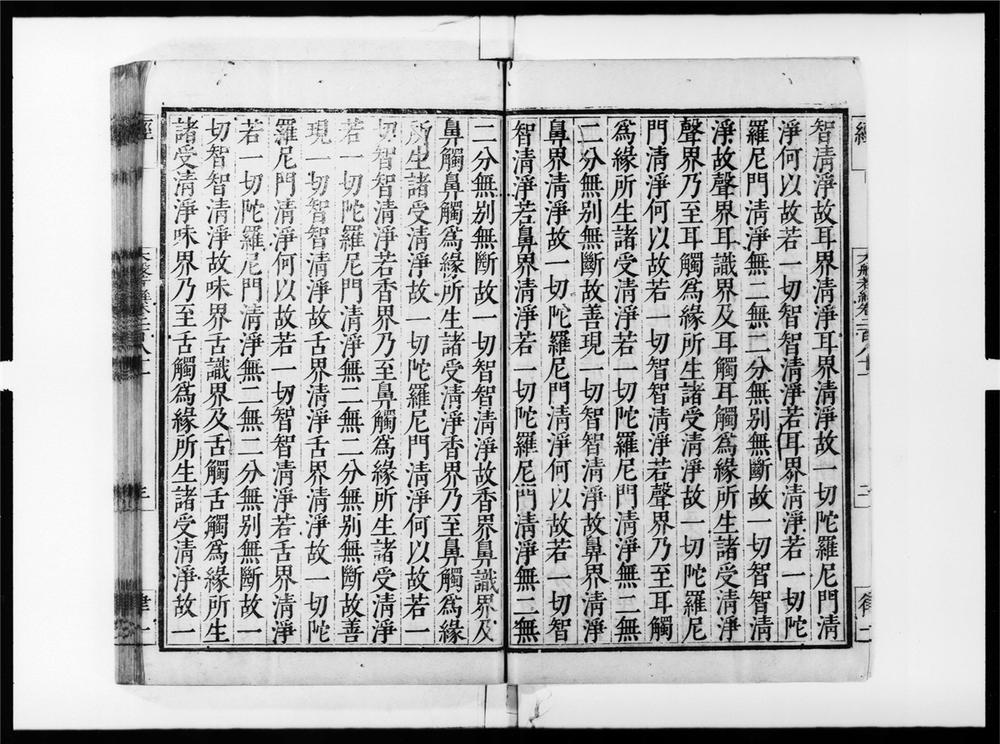 經
大般若經卷二百八十一
二
律二
智清淨故耳界清淨耳界清淨故一切陀羅尼門清
淨何以故若一切智智清淨若耳界清淨若一切陀
羅尼門清淨無二無二分無別無斷故一切智智清
淨故聲界耳識界及耳觸耳觸為緣所生諸受清淨
聲界乃至耳觸為緣所生諸受清淨故一切陀羅尼
門清淨何以故若一切智智清淨若聲界乃至耳觸
為緣所生諸受清淨若一切陀羅尼門清淨無二無
二分無別無斷故善現一切智智清淨故鼻界清淨
鼻界清淨故一切陀羅尼門清淨何以故若一切智
智清淨若鼻界清淨若一切陀羅尼門清淨無二無
二分無別無斷故一切智智清淨故香界鼻識界及
鼻觸鼻觸為緣所生諸受清淨香界乃至鼻觸為緣
所生諸受清淨故一切陀羅尼門清淨何以故若一
切智智清淨若香界乃至鼻觸為緣所生諸受清淨
若一切陀羅尼門清淨無二無二分無別無斷故善
現一切智智清淨故舌界清淨舌界清淨故一切陀
羅尼門清淨何以故若一切智智清淨若舌界清淨
若一切陀羅尼門清淨無二無二分無別無斷故一
切智智清淨故味界舌識界及舌觸舌觸為緣所生
諸受清淨味界乃至舌觸為緣所生諸受清淨故一
經
律二